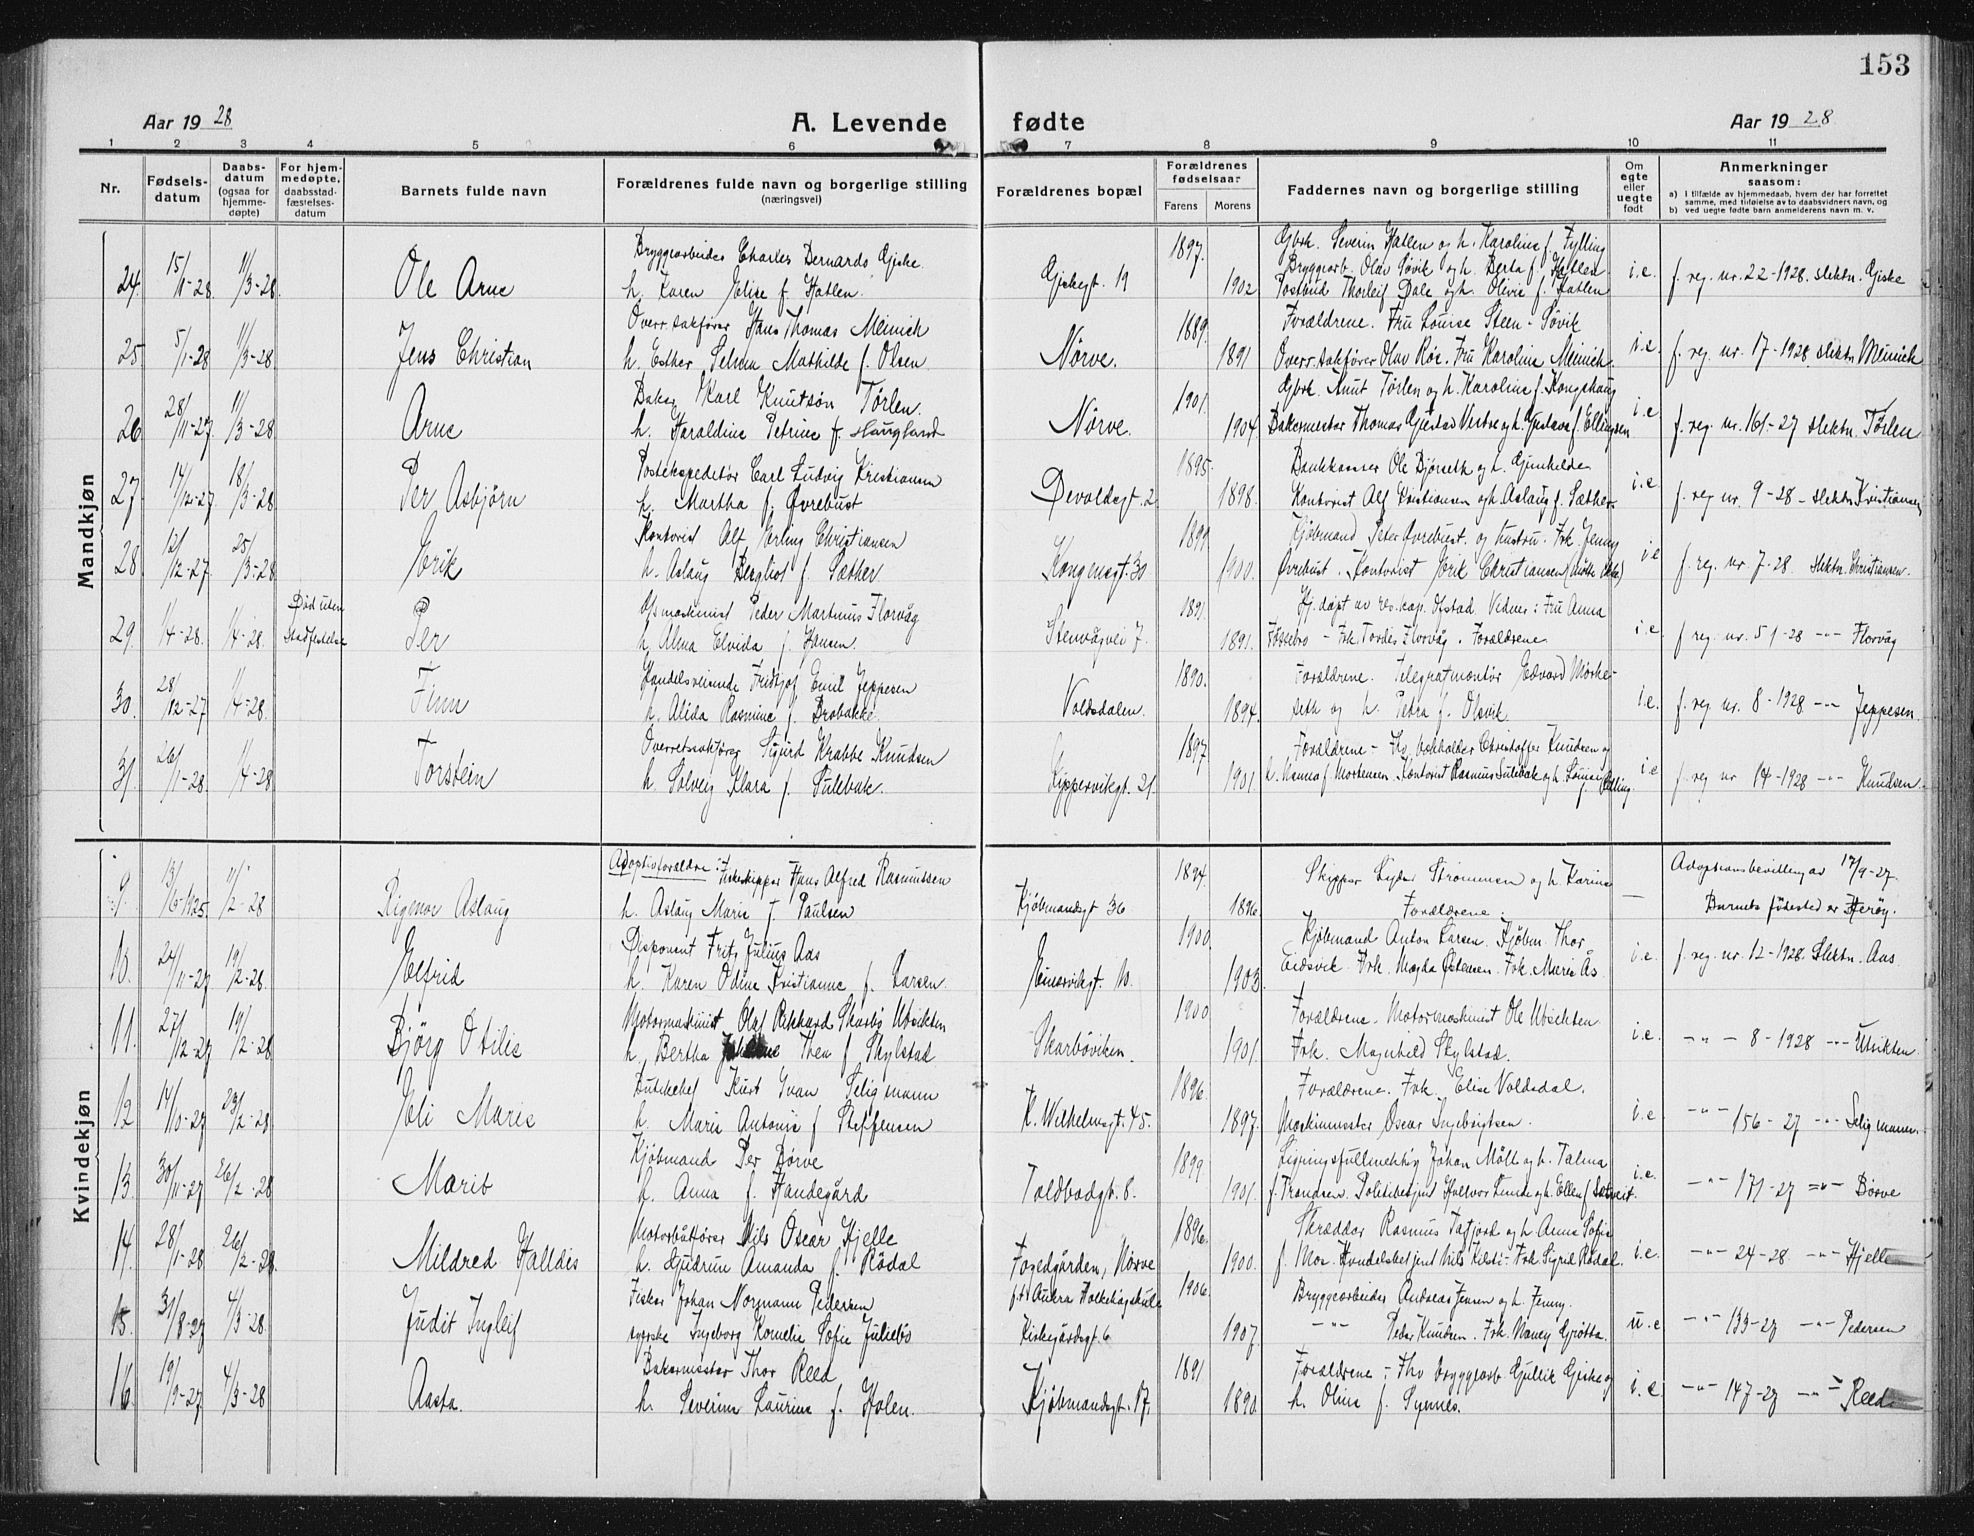 153
Aar 1928
A. Levende fødte
Aar 1928
1 2 3 4 5 6 7 8 9 10 11
Nr.
Fødsels-datum
Daabs-datum (ogsaa for hjemme-døpte)
For hjem-medøpte, daabsstad-fæstelses-datum
Barnets fulde navn
Forældrenes fulde navn og borgerlige stilling (næringsvei)
Forældrenes bopæl
Forældrenes fødselsaar
Farens
Morens
Faddernes navn og borgerlige stilling
Om egte eller uegte født
Anmerkninger saasom:
a) I tilfælde av hjemmedaab, hvem der har forrettet samme, med tilføielse av to daabsvidners navn, og
b) ved uegte fødte barn anmelderens navn m. v.
Mandkjøn
Bryggearbeider Charles Bernards Giske 1897. Gbrk. Severin Hatlen og h. Karoline f. Fylling
Bryggearb. Olav Søvik og h. Berta f. Hatlen
24. 15/11-28. 11/3-28 Ole Arne h. Karen Elise f. Hatlen. Giskegt. 19 1902 Postbud Thorleif Dale og h. Olivie f. Hatlen i.e. f. reg. nr. 22-1928. slektn. Giske
Overr.sakfører Hans Thomas Meinich 1889. Forældrene. Fru Louise Steen-Søvik
25 5/1-28 11/3-28 Jens Christian h. Esther Selma Mathilde f. Olsen Nørve. 1891 Overr.sakfører Olav Røe. Fru Karoline Meinich. i.e. f. reg. nr. 17-1928. slektn Meinich
Baker Karl Knutsøn Tørlen. 1901. Gbrk. Knut Tørlen og h. Karoline f. Kongshaug
26 28/11-27 11/3-28 Arne h. Haraldine Petrine f. Haugland Nørve. 1904 Bakermester Thomas Gjestad Vestre og h. Gustava f. Ellingsen i.e f. reg. nr. 161-27 slektn. Tørlen
Postekspeditør Carl Ludvig Kristiansen 1895. Bankkasser Ole Bjørseth og h. Gunhilde
27. 17/12-27 18/3-28 Per Asbjørn h. Martha f. Øvrebust Devoldsgt. 2. 1898. Kontorist Alf Kristiansen og h. Aslaug f. Sæther. i.e f. reg nr. 9-28 - slektn Kristiansen
Kontorist Alf Erling Christiansen 1899 Kjøbmand Peter Øvrebust og hustru. Frk. Jenny
28. 12/12-27. 25/3-28 Erik h. Aslaug Bergliot f. Sæther Kongensgt. 30 1900. Øvrebust. Kontorist Erik Christiansen i.e f. reg. nr. 7-28 slektn. Christiansen.
Død uten Maskinist Peder Martinus Florvåg 1891. Hj. døpt av res. kap. Ofstad. Vidner: Fru Anna
29. 1/4-28. 1/4-28. Stadfestelse Per h. Alma Elvida f. Hansen. Stenvågvei 7. 1891. Fossebro - Frk Tordis Florvåg. Forældrene i.e f. reg. nr. 51-28 -"- Florvåg
Handelsreisende Fridtjof Emil Jeppesen 1890. Forældrene. Telegrafmontør Edvard Morke-
30. 28/12-27 1/4-28. Finn h. Alida Rasmine f. Brobakke. Voldsdalen. 1894. seth og h. Petra f. Olsvik i.e. f. reg. nr. 8-1928 -"- Jeppesen.
Overretssakfører Sigurd Krabbe Knudsen 1897 Forældrene - Fhv. bokholder Christoffer Knudsen og
31. 26/1-28. 1/4-28 Torstein h. Solveig Klara f. Sulebak. Kippervikgt. 21. 1901. h. Nanna f. Mortensen. Kontorist Rasmus Sulebak og h. Louise f. Fylling. i.e f. reg nr 14-1928 -"- Knudsen.
Kvindekjøn
Adoptivforældre: Fiskeskipper Hans Alfred Rasmussen 1894. Skipper Lyder Strømmen og h. Karine Adoptionsbevilling av 17/9-27.
9. 13/6-1925. 11/2-28 Rigmor Aslaug h. Aslaug Marie f. Paulsen Kjøbmandsgt 36 1896. Forældrene. — Barnets fødested er Herøy.
Disponent Fritz Julius Aas 1900 Kjøbmand Anton Larsen. Kjøbm. Thor
10. 24/11-27 19/2-28. Elfrid h. Karen Odine Kristianne f. Larsen. Einervikgt. 10. 1903. Eidsvik. Frk. Magda Ostensen. Frk. Marie Ås i.e. f. reg nr. 12-1928. Slektn. Aas
Motormaskinist Olaf Rikhard Skarbø Utvikten 1900 Forældrene. Motormaskinist Ole Utvikten
11. 27/12-27 19/2-28 Bjørg Otilie h. Bertha Thea f. Skylstad Skarbøviken. 1901. Frk. Magnhild Skylstad. i.e. -"- 8-1928 -"- Utvikten.
Butikchef Kurt Ivan Seligmann 1896. Forældrene. Frk. Elise Voldsdal.
12 14/10-27 23/2-28 Eli Marie h. Marie Antonie f. Steffensen K. Wilhelmsgt. 45. 1897. Maskinmester Oscar Ingebrigtsen. i.e -"- 156-27 -"- Seligmann.
Kjøbmand Per Børve 1899 Ligningsfullmektig Johan Møll og h. Talma
13. 30/11-27 26/2-28 Marit h. Anna f. Handegård Toldbodgt. 8. 1901. f. Trandsen. Politibetjent Hallvor Lunde og h. Ellen f. Sætveit. i.e. -"- 171-27 -"- Børve
Motorbåtfører Nils Oscar Hjelle 1896. Skrædder Rasmus Tafjord og h. Anna Sofie
14. 28/1-28 26/2-28 Mildred Halldis h. Gudrun Amanda f. Rødal Fogedgården, Nørve 1900. f. Moe. Handelsbetjent Nils Kilsti - Frk. Sigrid Rødal. i.e. -"- 24-28 -"- Hjelle
Fisker Johan Normann Pedersen p.t. Aukra Folkehøgskule 1906. Bryggearbeider Andreas Jensen og h. Jenny.
15. 31/8-27 4/3-28. Judit Ingleif syerske Ingeborg Kornelie Sofie Juliebø Kirkegårdsgt. 6 1907. -"- Peder Knudsen. Frk. Nancy Grøtta. u.e -"- 133-27 -"- Pedersen
Bakermester Thor Reed 1891 Forældrene - Fhv bryggearb. Gullik Giske og
16. 19/9-27 4/3-28 Aasta. h. Severine Laurine f. Holen. Kjøbmandsgt. 17. 1890. h. Oline f. Synnes. i.e -"- 147-27 -"- Reed.